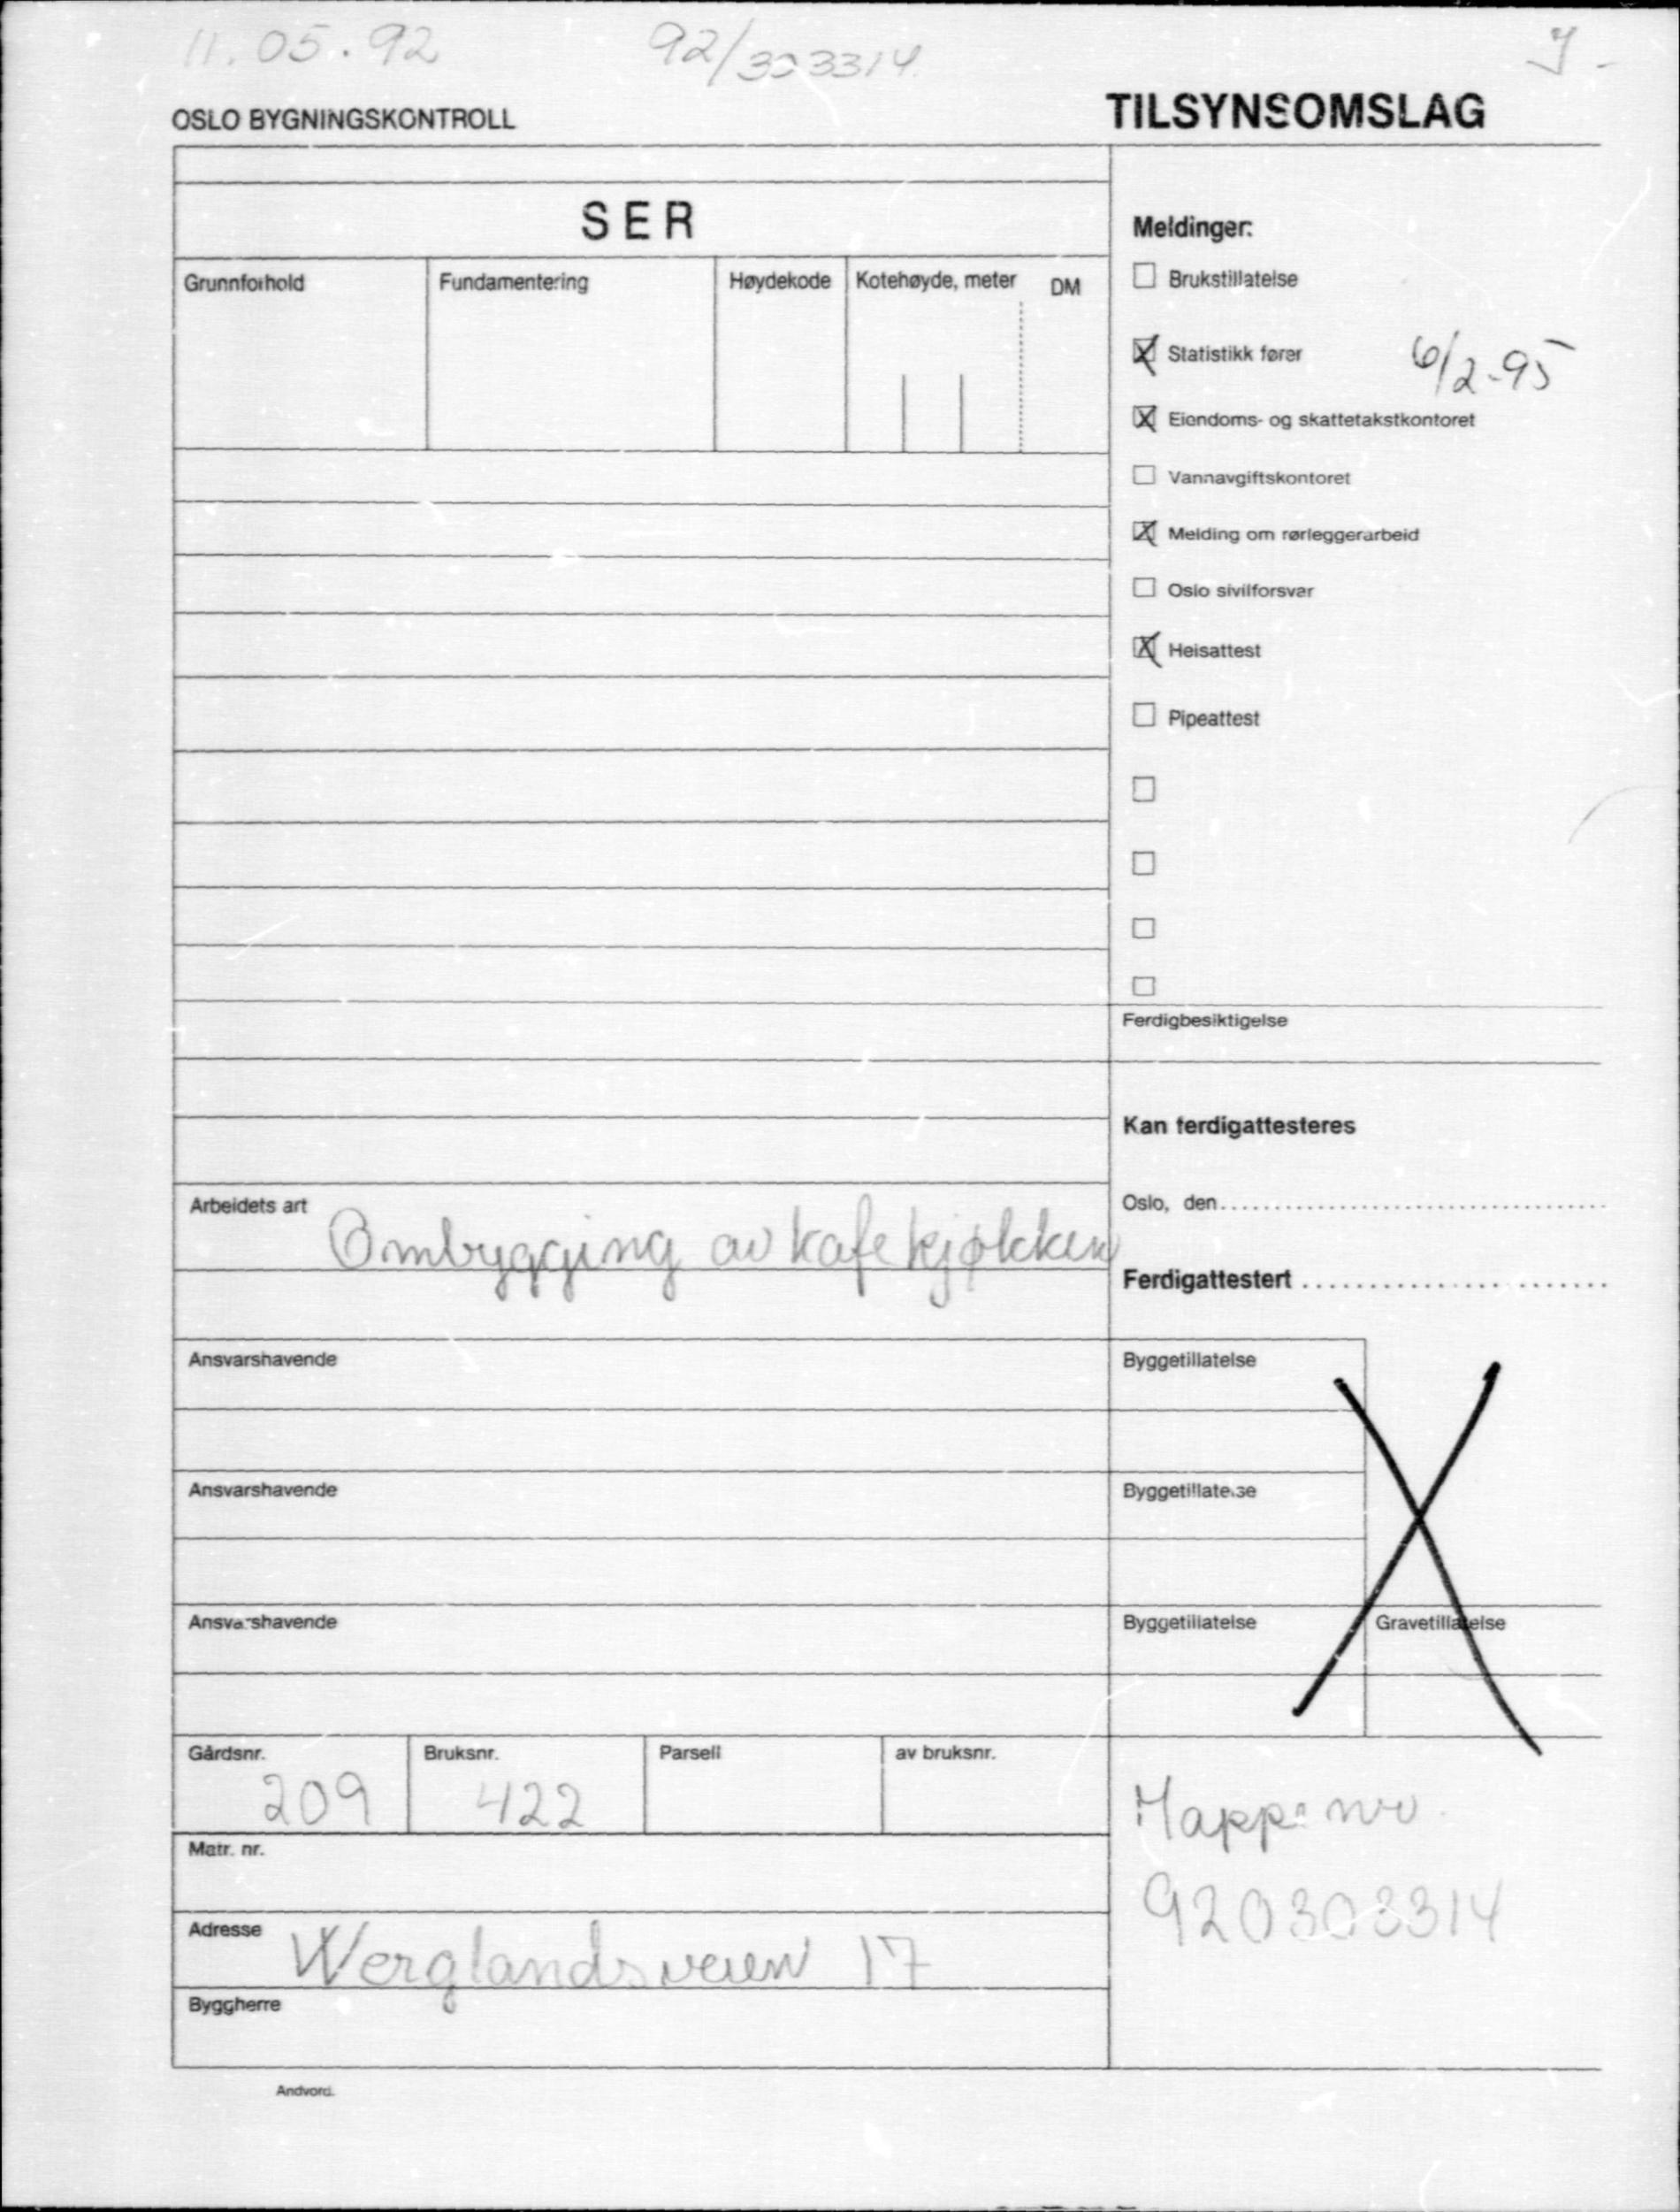 11.05.92 92/303314 J-
OSLO BYGNINGSKONTROLL
TILSYNSOMSLAG
SER
Grunnforhold Fundamentering Høydekode Kotehøyde, meter DM
Meldinger:
Brukstillatelse
Statistikk fører 6/2-95
Eiendoms- og skattetakstkontoret
Vannavgiftskontoret
Melding om rørleggerarbeid
Oslo sivilforsvar
Heisattest
Pipeattest
Ferdigbesiktigelse
Kan ferdigattesteres
Oslo, den
Ferdigattestert
Arbeidets art
Ombygging av kafekjøkken
Ansvarshavende Byggetillatelse
Ansvarshavende Byggetillatelse
Ansvarshavende Byggetillatelse Gravetillatelse
Gårdsnr. Bruksnr. Parsell av bruksnr.
209 422
Matr. nr.
Adresse Werglandsveien 17
Byggherre
Mappe nr.
920303314
Andvord.